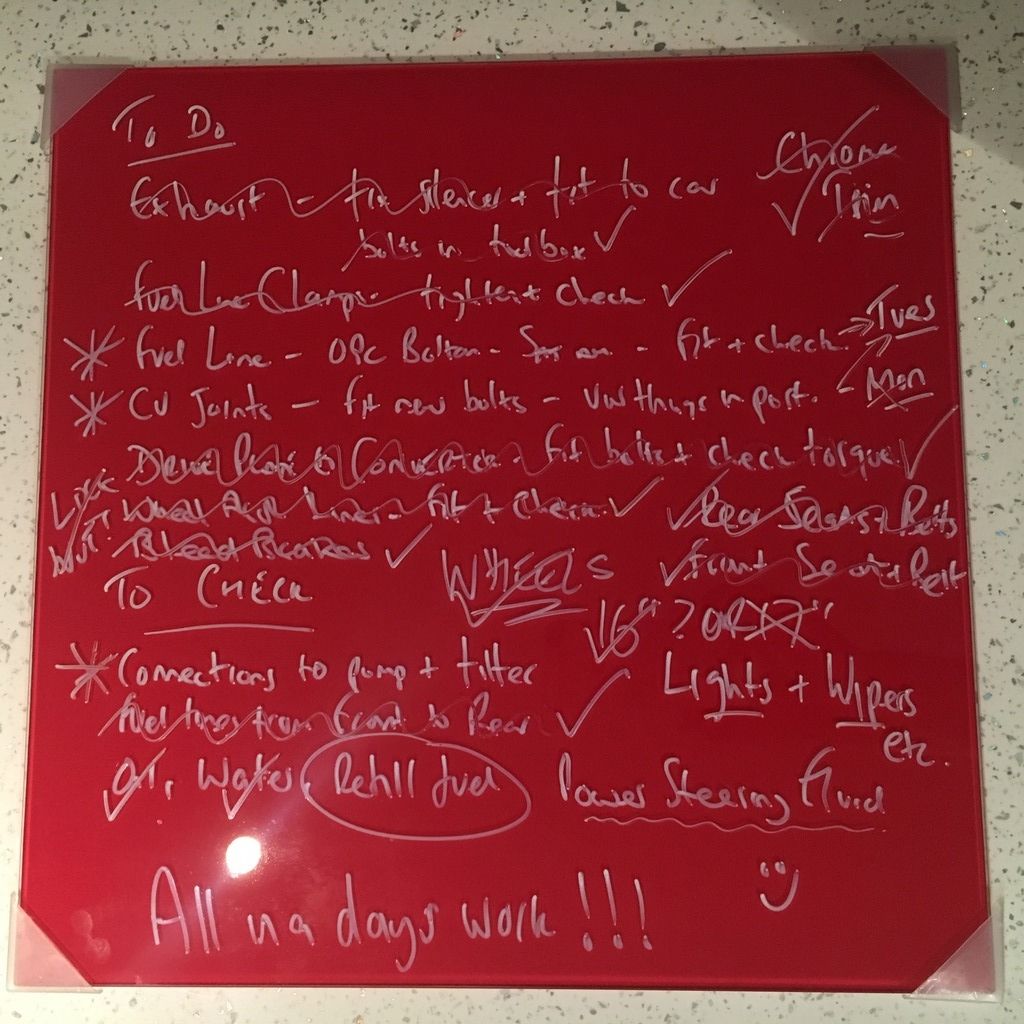 To Do
Exhaust - fix silencer + fit to car
bolts in toolbox
Chrome
Trim
Fuel Line Clamps - tighten + check
Fuel Line - OPC Bolton - - fit + check
Tues
CV Joints - fit new bolts - VW things in post. - Mon
to Converter - fit bolts + check torque
Wheel Arch Liner - fit + check
Rear Seats + Belts
Bleed Brakes
Front Seat + Belt
To CHECK
WHEELS
16" ? OR 17"
Connections to pump + filter
Lights + Wipers
etc.
Fuel lines from Front to Rear
Oil, Water, Refill fuel
Power Steering Fluid
All in a days work !!!